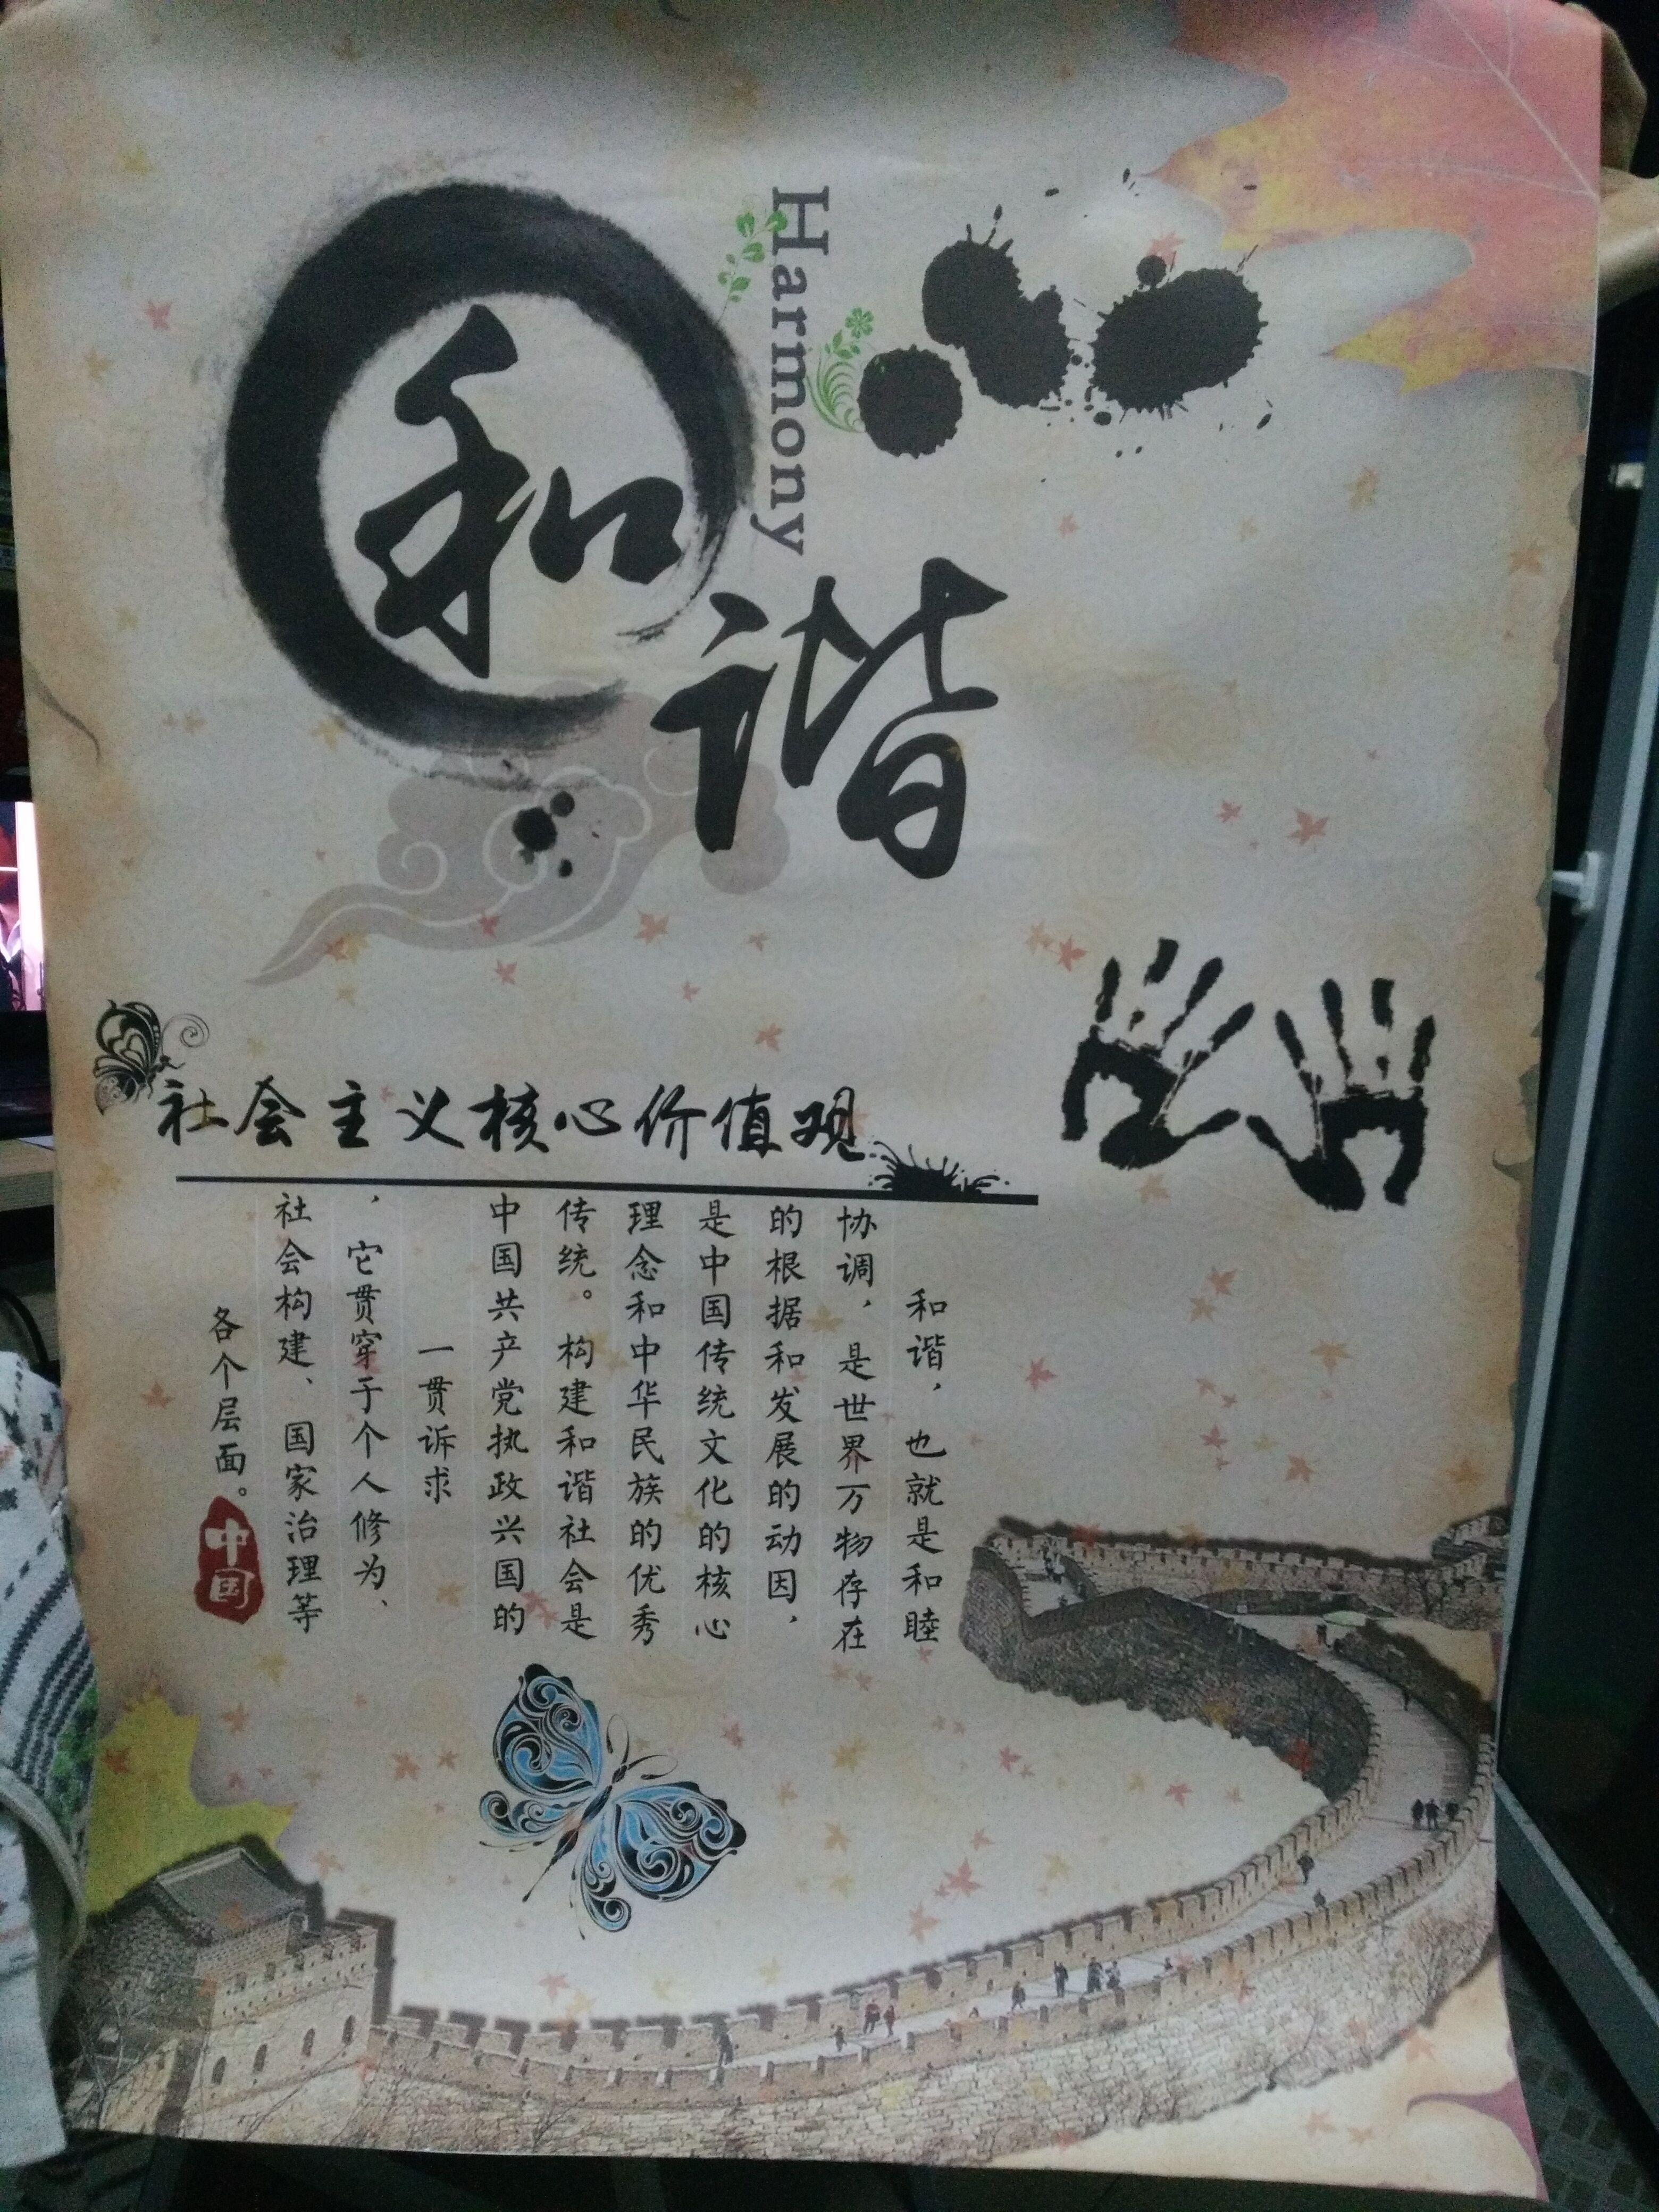 和谐
Harmony
社会主义核心价值观
和谐，也就是和睦
协调，是世界万物存在
的根据和发展的动因，
是中国传统文化的核心
理念和中华民族的优秀
传统。构建和谐社会是
中国共产党执政兴国的
一贯诉求
，它贯穿于个人修为、
社会构建、国家治理等
各个层面。
中国